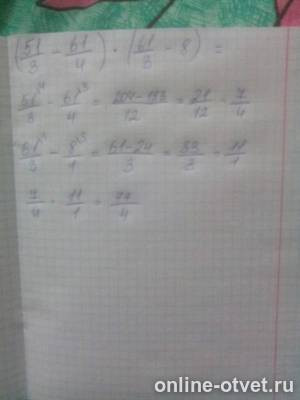 (51/3 - 61/4) · (61/3 - 8) =
51⁴/3 - 61³/4 = 204-183/12 = 21/12 = 7/4
61¹/3 - 8³/1 = 61-24/3 = 33/3 = 11/1
7/4 · 11/1 = 77/4
online-otvet.ru